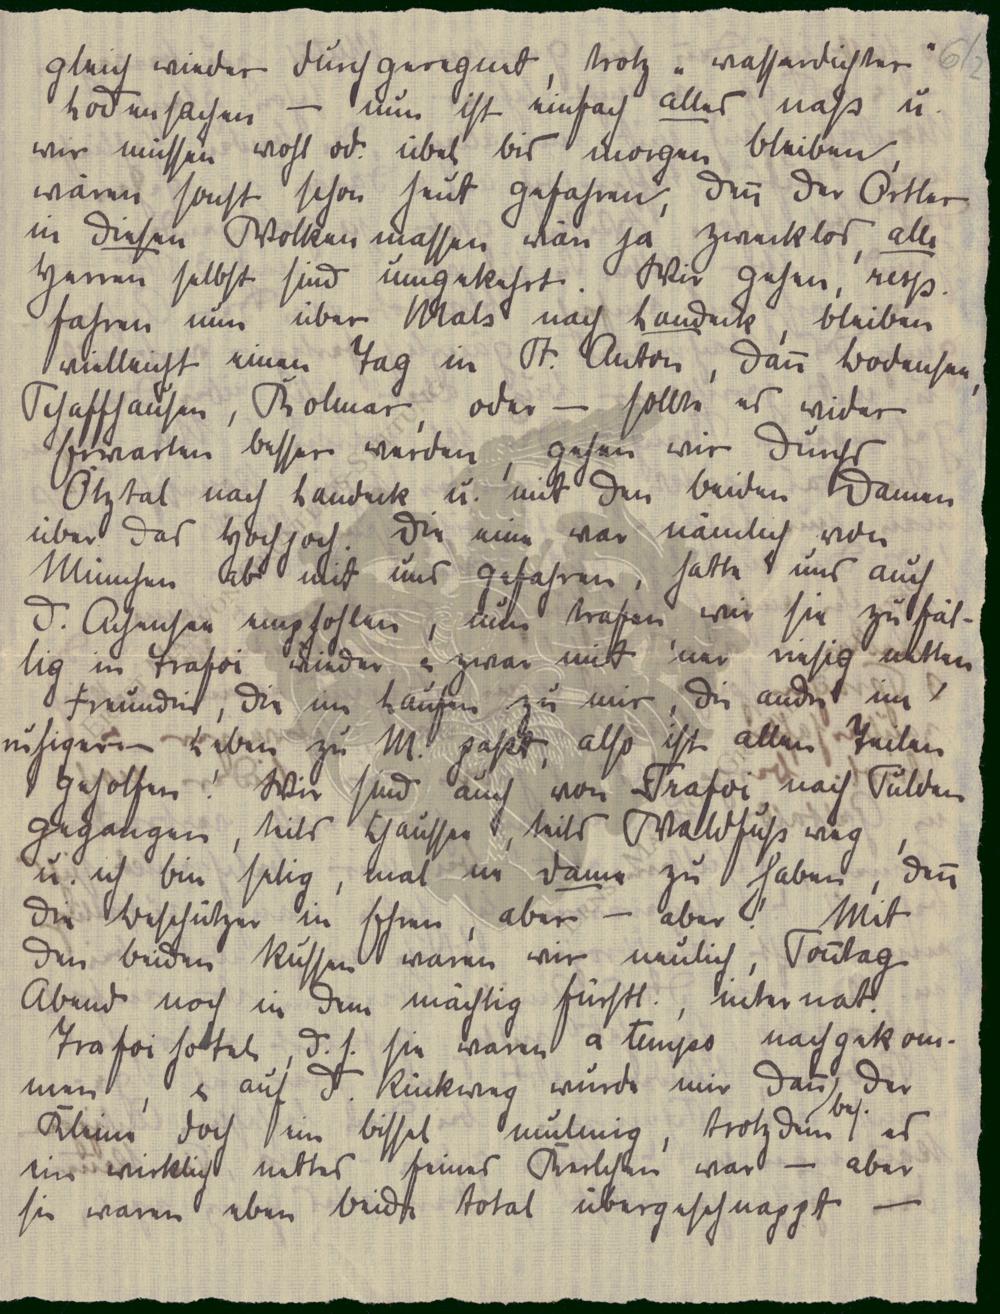 gleich wieder durchgeregnet, trotz „wasserdichter“ 6/2
Lodensachen — nun ist einfach alles naß u.
wir müssen wohl od. übel bis morgen bleiben,
wären sonst schon heut gefahren, den̄ der Ortler
in diesen Wolkenmassen wär ja zwecklos, alle
Herren selbst sind umgekehrt. Wir gehen, resp.
fahren nun über Mals nach Landeck, bleiben
vielleicht einen Tag in St. Anton, dan̄ Bodensee,
Schaffhausen, Kolmar, oder — sollte es wider
Erwarten besser werden, gehen wir durchs
Ötztal nach Landeck u. mit den beiden Damen
über das Hochjoch. Die eine war nämlich von
München ab mit uns gefahren, hatte uns auch
d. Achensee empfohlen, nun trafen wir sie zufäl-
lig in Trafoi wieder u zwar mit 'ner riesig netten
Freundin, die im Laufen zu mir, die andre im
ruhigeren Leben zu M. paßt, also ist allen Teilen
geholfen! Wir sind auch von Trafoi nach Sulden
gegangen, teils Chaussee, teils Waldfußweg,
u. ich bin selig, mal ne Dame zu haben, den̄
die Beschützer in Ehren, aber — aber! Mit
den beiden Russen waren wir neulich, Son̄tag
Abend noch in dem mächtig fürstl., internat.
Trafoihotel, d. h. sie waren a tempo nachgekom-
men, u auf d. Rückweg wurde mir dan̄ der
Kleine doch ein bissel mulmig, trotzdem bes. es
ein wirklich nettes feines Kerlchen war — aber
sie waren eben beide total übergeschnappt —